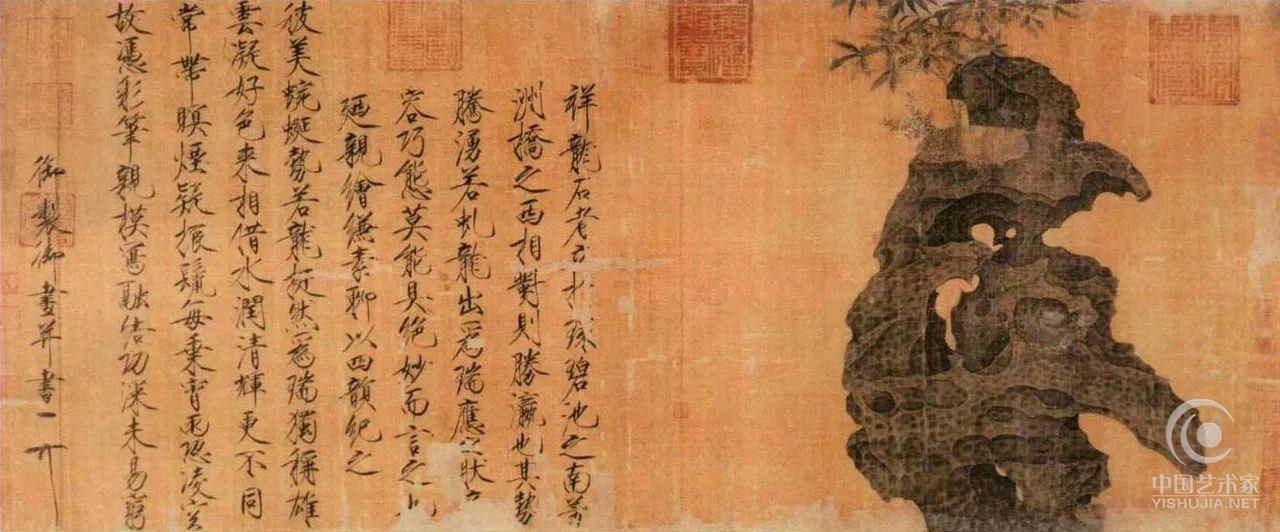 祥龍石者立於環碧池之南芳
洲橋之西相對則勝瀛也其勢
騰湧若虬龍出為瑞應之狀奇
容巧態莫能具絕妙而言之也
廼親繪縑素聊以四韻紀之
彼美蜿蜒勢若龍挺然為瑞獨稱雄
雲凝好色來相借水潤清輝更不同
常帶暝煙疑振鬣每乘宵雨恐凌空
故憑彩筆親模寫融結功深未易窮
御製御畫并書
中国艺术家
YISHUJIA.NET